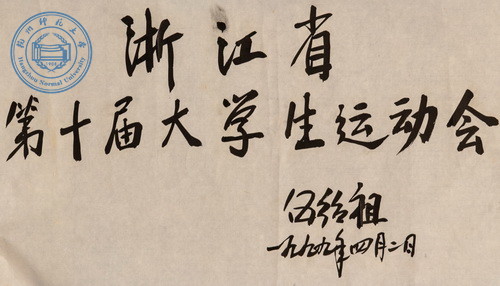 杭州师范大学
Hangzhou Normal University
浙江省
第十届大学生运动会
伍绍祖
一九九九年四月二日